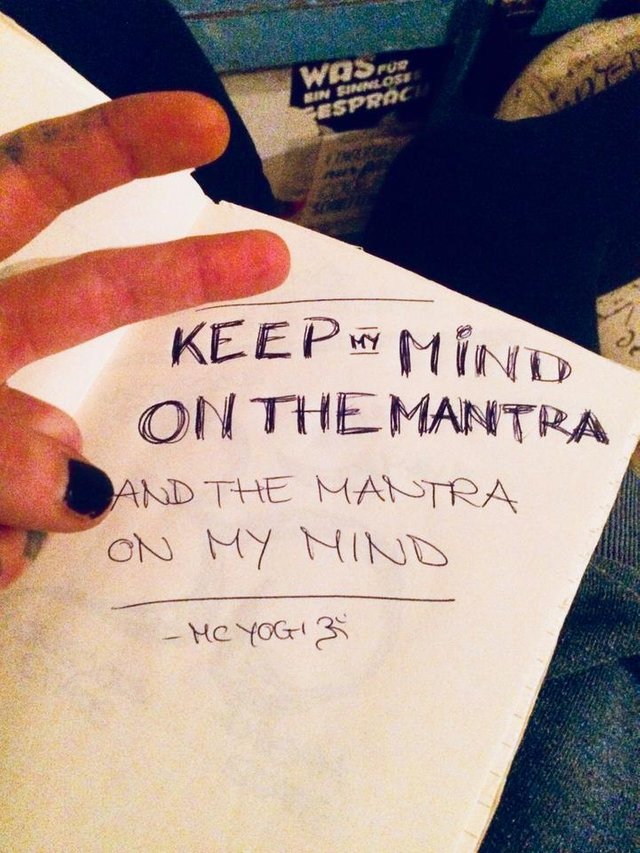 WAS FÜR
EIN SINNLOSES
GESPRÄCH
KEEP MY MIND
ON THE MANTRA
AND THE MANTRA
ON MY MIND
- MC YOGI ॐ